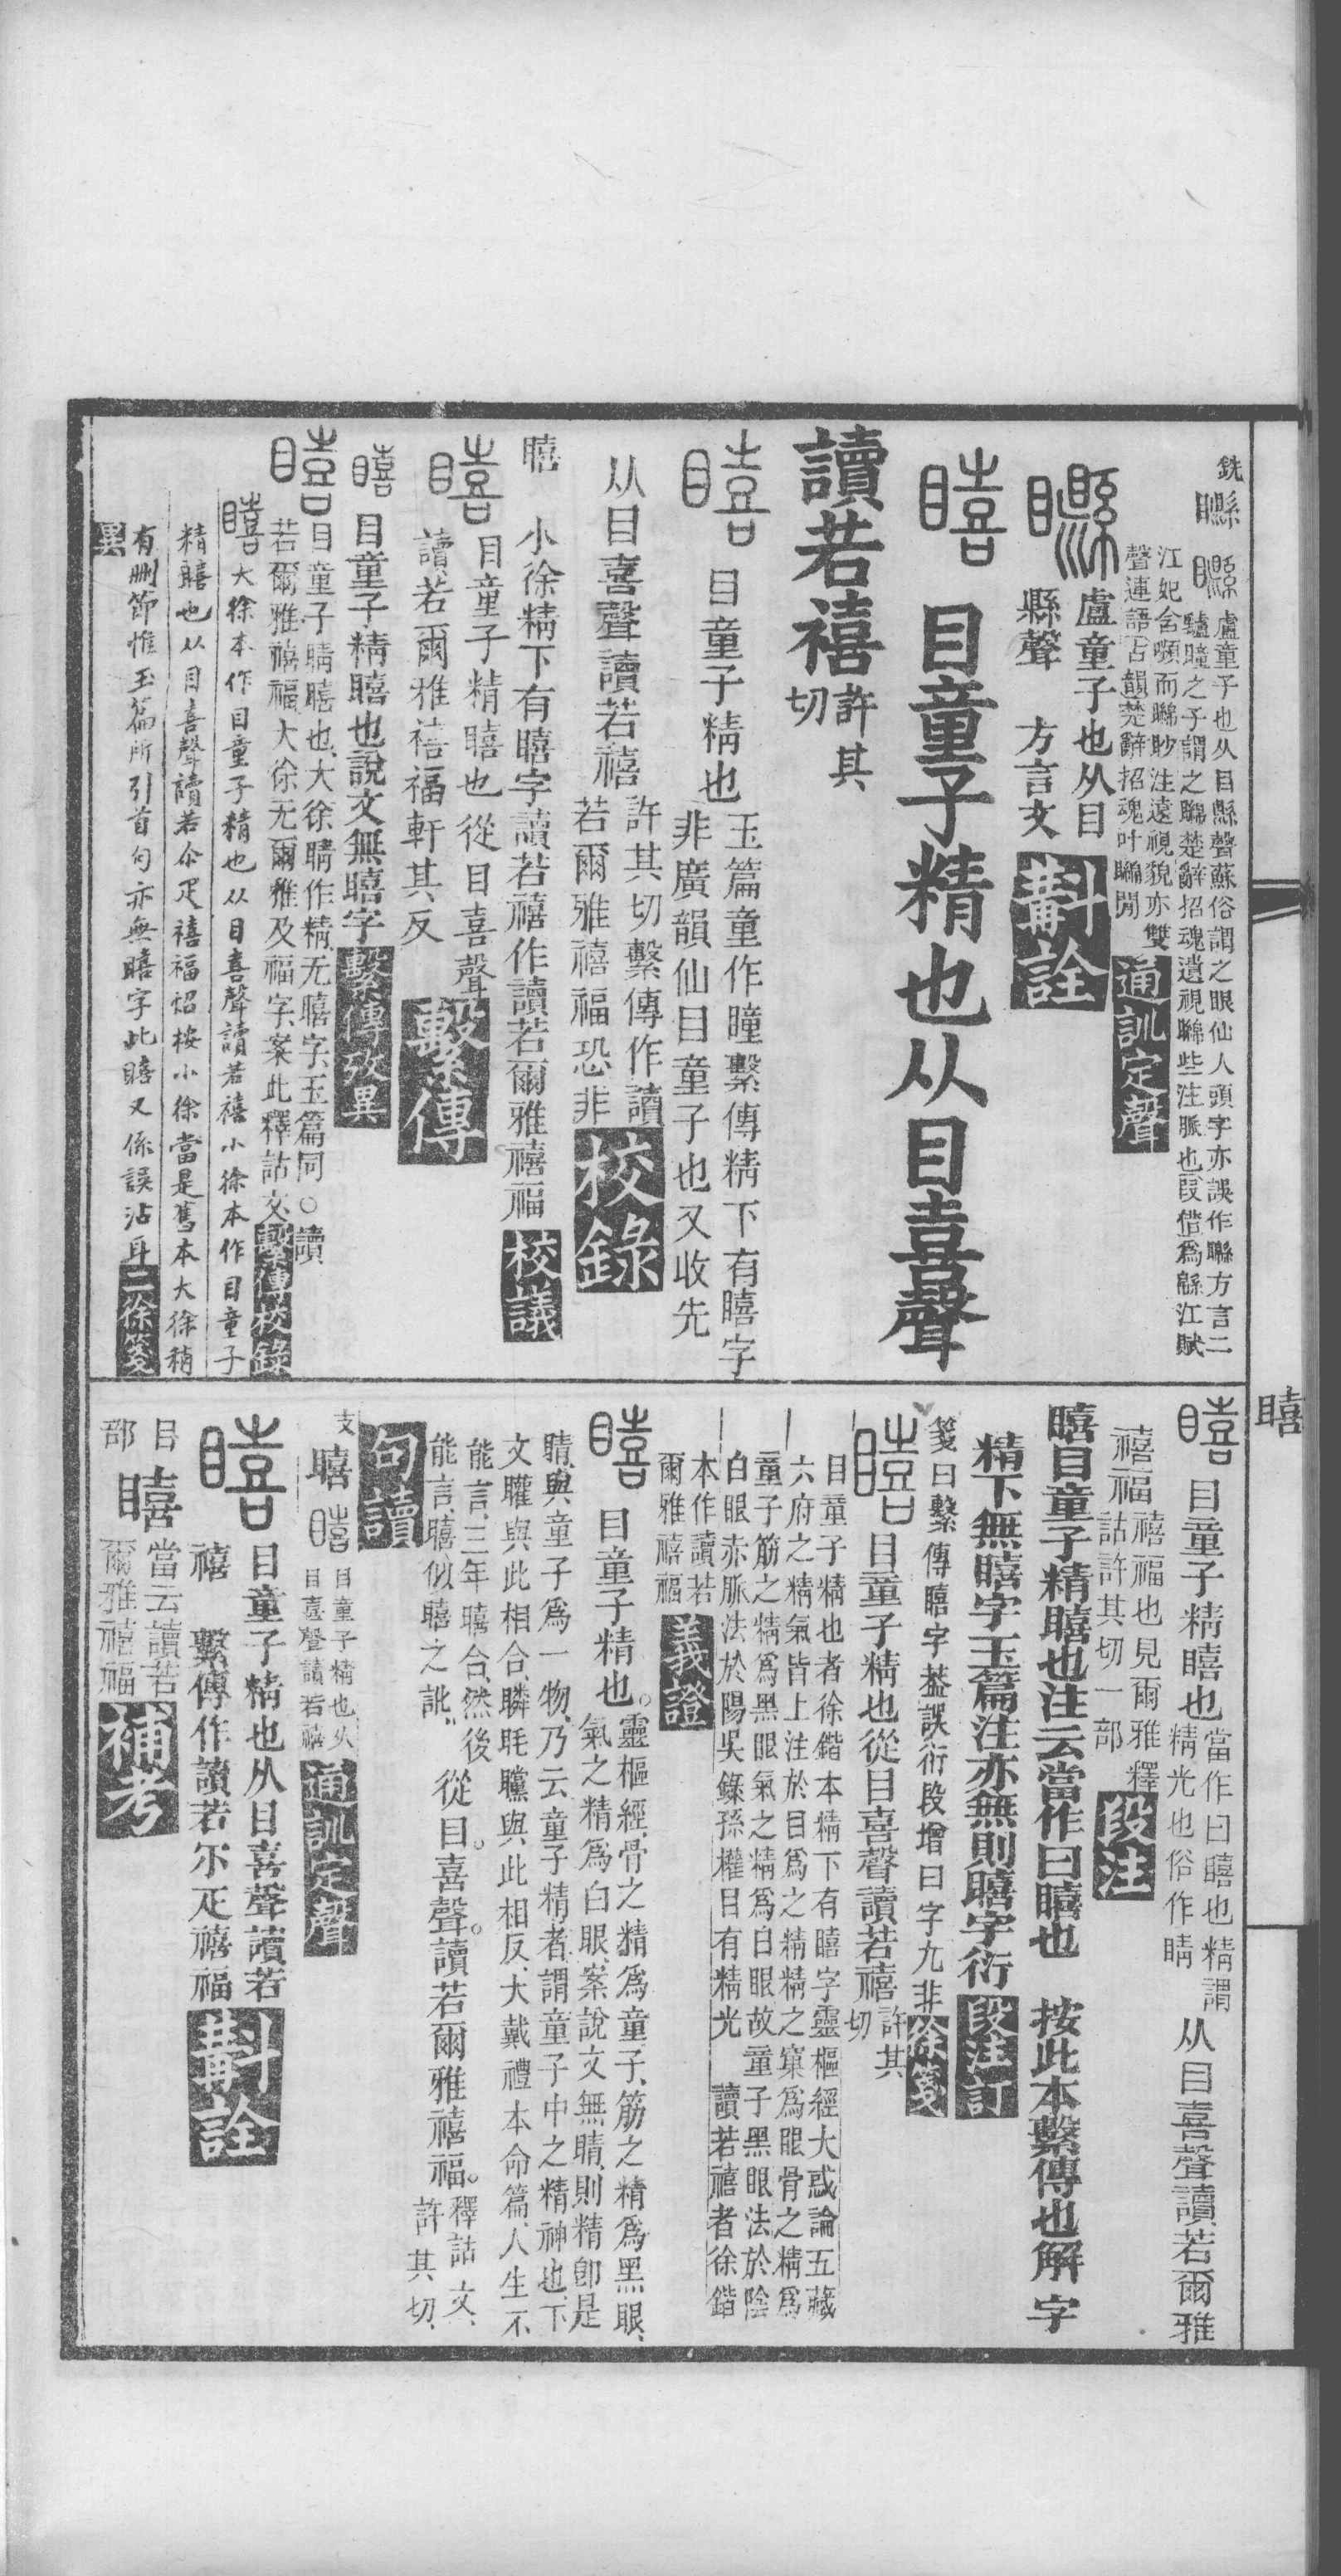 銑
矑 盧童子也从目縣聲蘇俗謂之眼仙人頭字亦誤作矊方言二
驢瞳之子謂之矊楚辭招魂遺視矊些注脈也叚借爲緜江賦
江妃含嚬而矊眇注遠視貌亦雙
聲連語古韻楚辭招魂叶矊閒
通訓定聲
盧童子也从目
縣聲 方言文
斠詮
目童子精也从目喜聲
讀若禧
許其
切
目童子精也
玉篇童作瞳繫傳精下有瞦字
非廣韻仙目童子也又收先
从目喜聲讀若禧
許其切繫傳作讀
若爾雅禧福恐非
校錄
瞦 小徐精下有瞦字讀若禧作讀若爾雅禧福
校議
目童子精瞦也從目喜聲
讀若爾雅禧福軒其反
繫傳
目童子精瞦也說文無瞦字
繫傳攷異
目童子睛瞦也大徐睛作精无瞦字玉篇同○讀
若爾雅禧福大徐无爾雅及福字案此釋詁文
繫傳校錄
大徐本作目童子精也从目喜聲讀若禧小徐本作目童子
精瞦也从目喜聲讀若尒疋禧福炤桉小徐當是舊本大徐稍
有刪節惟玉篇所引首句亦無瞦字此瞦又係誤沾耳
二徐箋
異
瞦
目童子精瞦也
當作曰瞦也精謂
精光也俗作睛
从目喜聲讀若爾雅
禧福
禧福也見爾雅釋
詁許其切一部
段注
瞦目童子精瞦也注云當作曰瞦也 按此本繫傳也解字
精下無瞦字玉篇注亦無則瞦字衍
段注訂
箋曰繫傳瞦字葢誤衍段增曰字九非
徐箋
目童子精也從目喜聲讀若禧
許其
切
目童子精也者徐鍇本精下有瞦字靈樞經大惑論五藏
六府之精氣皆上注於目爲之精精之窠爲眼骨之精爲
童子筋之精爲黑眼氣之精爲白眼故童子黑眼法於陰
白眼赤脈法於陽吳錄孫權目有精光 讀若禧者徐鍇
本作讀若
爾雅禧福
義證
目童子精也。
靈樞經、骨之精爲童子、筋之精爲黑眼、
氣之精爲白眼、案說文無睛、則精卽是
睛、與童子爲一物、乃云童子精者、謂童子中之精神也、下
文矔與此相合、瞵眊矘與此相反、大戴禮本命篇、人生不
能言、三年瞦合、然後
能言、瞦似瞦之訛、
從目。喜聲。讀若爾雅禧福。
釋詁文、
許其切、
句讀
支
瞦
目童子精也从
目喜聲讀若禧
通訓定聲
目童子精也从目喜聲讀若
禧 繫傳作讀若尒疋禧福
斠詮
目
部
瞦
當云讀若
爾雅禧福
補考